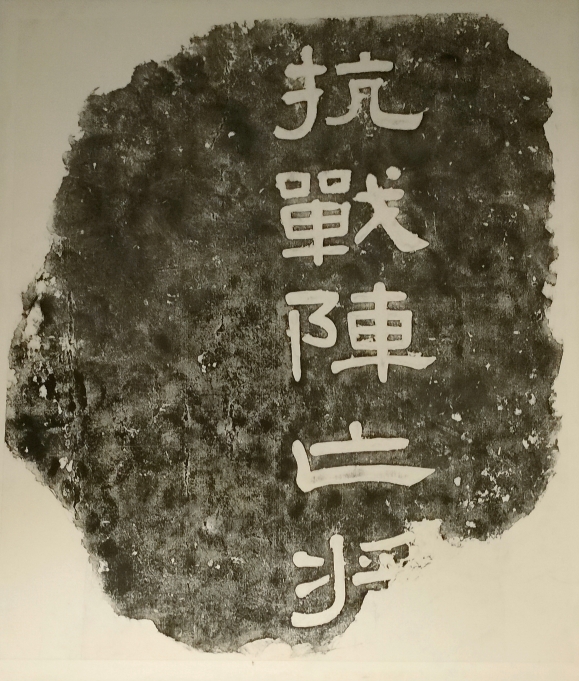 抗戰陣亡將